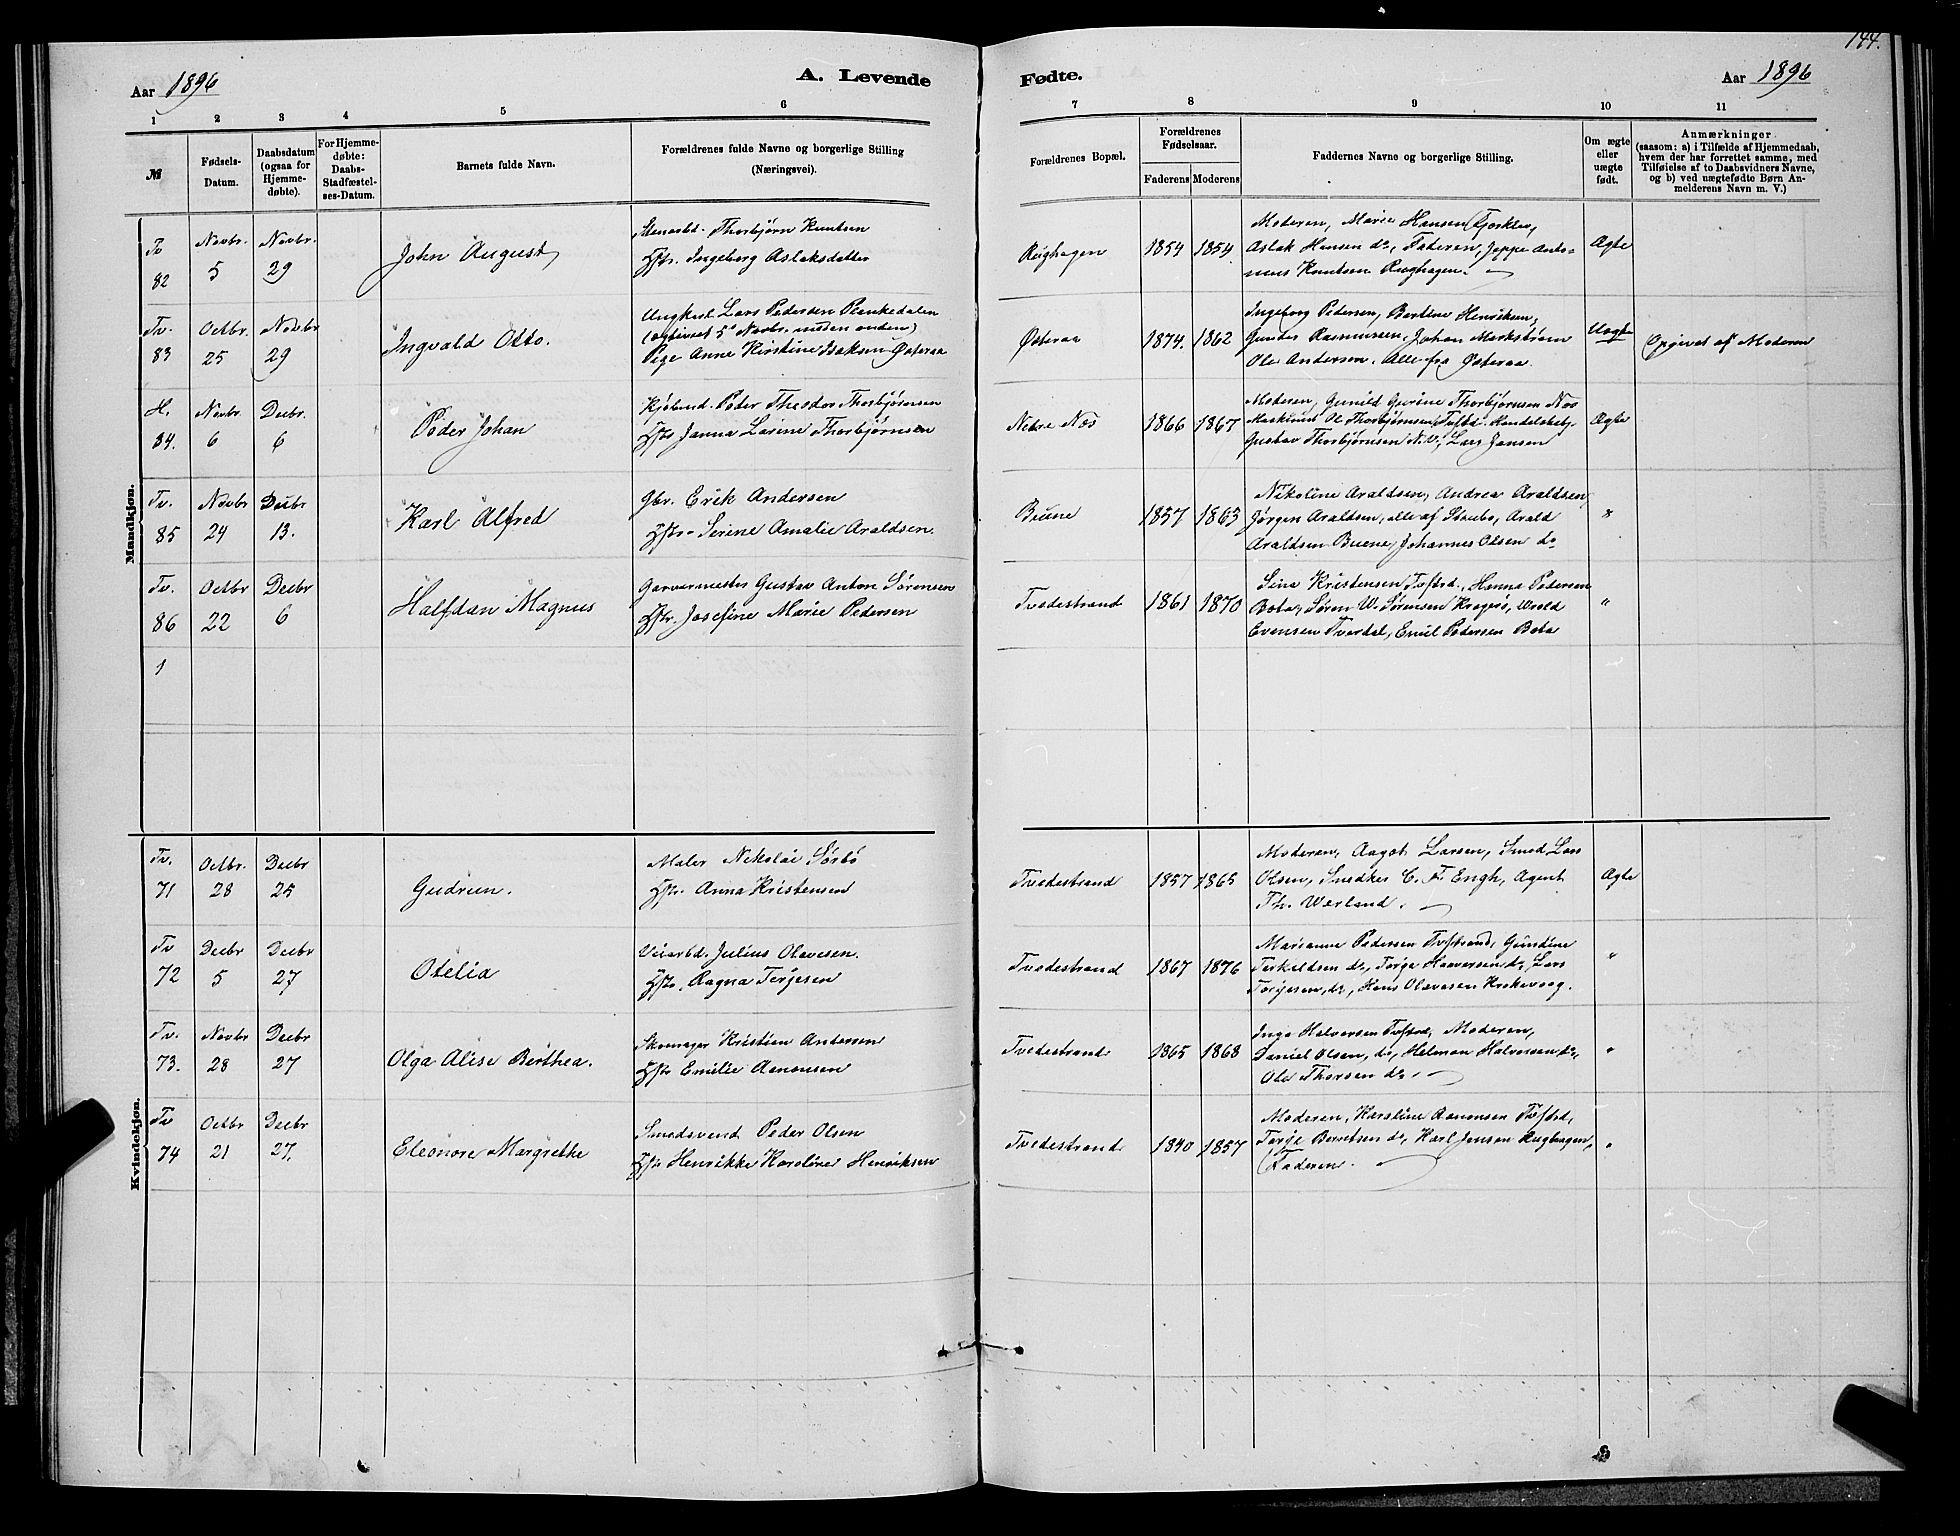 144.
Aar 1896
A. Levende
Fødte.
Aar 1896
1 2 3 4 5 6 7 8 9 10 11
№
Fødsels-
Datum.
Daabsdatum
(ogsaa for
Hjemme-
døbte).
For Hjemme-
døbte:
Daabs-
Stadfæstel-
ses-Datum.
Barnets fulde Navn.
Forældrenes fulde Navne og borgerlige Stilling
(Næringsvei).
Forældrenes Bopæl.
Forældrenes
Fødselsaar.
Faderens Moderens
Faddernes Navne og borgerlige Stilling.
Om ægte
eller
uægte
født.
Anmærkninger
(saasom: a) i Tilfælde af Hjemmedaab,
hvem der har forrettet samme, med
Tilføielse af to Daabsvidners Navne,
og b) ved uægtefødte Børn An-
melderens Navn m. V.)
Mandkjøn.
Tv 82
Novbr. 5
Novbr. 29
John August
Thorbjørn Knutsen
Hstr. Ingeborg Aslaksdatter
Rughagen
1854 1854
Moderen, Marie Hansen
Aslak Hansen do, Faderen, Jeppe Anto-
nius Knutsen Rughagen.
Ægte
Tv. 83
Octbr. 25
Novbr 29
Ingvald Otto.
Ungkarl Lars Pedersen Plankedalen
(opgivet 5te Novbr. næsten anden)
Pige Anne Kirstine Isaksen Østeraa
Østeraa
1874. 1862
Ingeborg Pedersen, Bertine Henriksen,
Gunder Rasmussen, Johan Markstrøm
Ole Andersen. Alle fra Østeraa.
Uægte
Opgivet af Moderen
H. 84.
Novbr. 6
Decbr. 6
Peder Johan
Peder Theodor Thorbjørnsen
Hstr Janna Lovine Thorbjørnsen
Nedre Næs
1866 1867
Moderen, Gunild Gurine Thorbjørnsen Næs
Maskinist Ol. Thorbjørnsen Tvstrd. Handelsbetj.
Gustav Thorbjørnsen N.V., Lars Jansen
Ægte
Tv. 85
Novbr 24
Decbr 13.
Karl Alfred
Gbr. Erik Andersen
Hstr. Serine Amalie Araldsen.
Buene
1857 1863
Nikoline Araldsen, Andrea Araldsen,
Jørgen Araldsen, alle af Staubo, Arald
Araldsen Buene, Johannes Olsen do
"
Tv. 86
Octbr 22
Decbr 6
Halfdan Magnus
Garvermester Gustav Anton Sørensen
Hstr. Josefine Marie Pedersen
Tvedestrand
1861 1870
Lina Kristensen Tvstrd., Hanna Pedersen
Bota, Søren W. Sørensen Kragerø,
Evensen Tverdal, Emil Pedersen Bota
"
1
Kvindekjøn.
Tv. 71
Octbr. 28
Decbr 25
Gudrun.
Maler Nikolai Sørbø
Hstr. Anna Kristensen
Tvedestrand
1857 1865
Moderen, Aagot Larsen, Smed Lars
Olsen, Snedker C. F. Engh, Agent
Th. Werland.
Ægte
Tv 72
Decbr 5
Decbr 27
Otelia
Veiarbd. Julius Olavesen.
Hstr. Ragna Terjesen
Tvedestrand
1867 1876
Marianne Pedersen Tvstrand, Gundine
Terkeldsen do, Terje Haaversen do, Lars
Terjesen, do, Hans Olavesen Krokevaag.
"
Tv. 73.
Novbr 28
Decbr 27
Olga Alise Berthea.
Skomager Kristian Andersen
Hstr Emilie Aanonsen
Tvedestrand
1865 1868
Inga Halvorsen Tvstrd, Moderen,
Daniel Olsen, do, Helman Halvorsen do,
Ole Thorsen do.
"
Tv 74
Octbr 21
Decbr 27.
Eleonore Margrethe
Smedsvend Peder Olsen
Hstr Henrikke Karoline Henriksen
Tvedestrand
1840 1857
Moderen, Karoline Aanonsen Tvstrd,
Terje Berntsen do, Karl Jensen Rughagen,
Faderen.
"